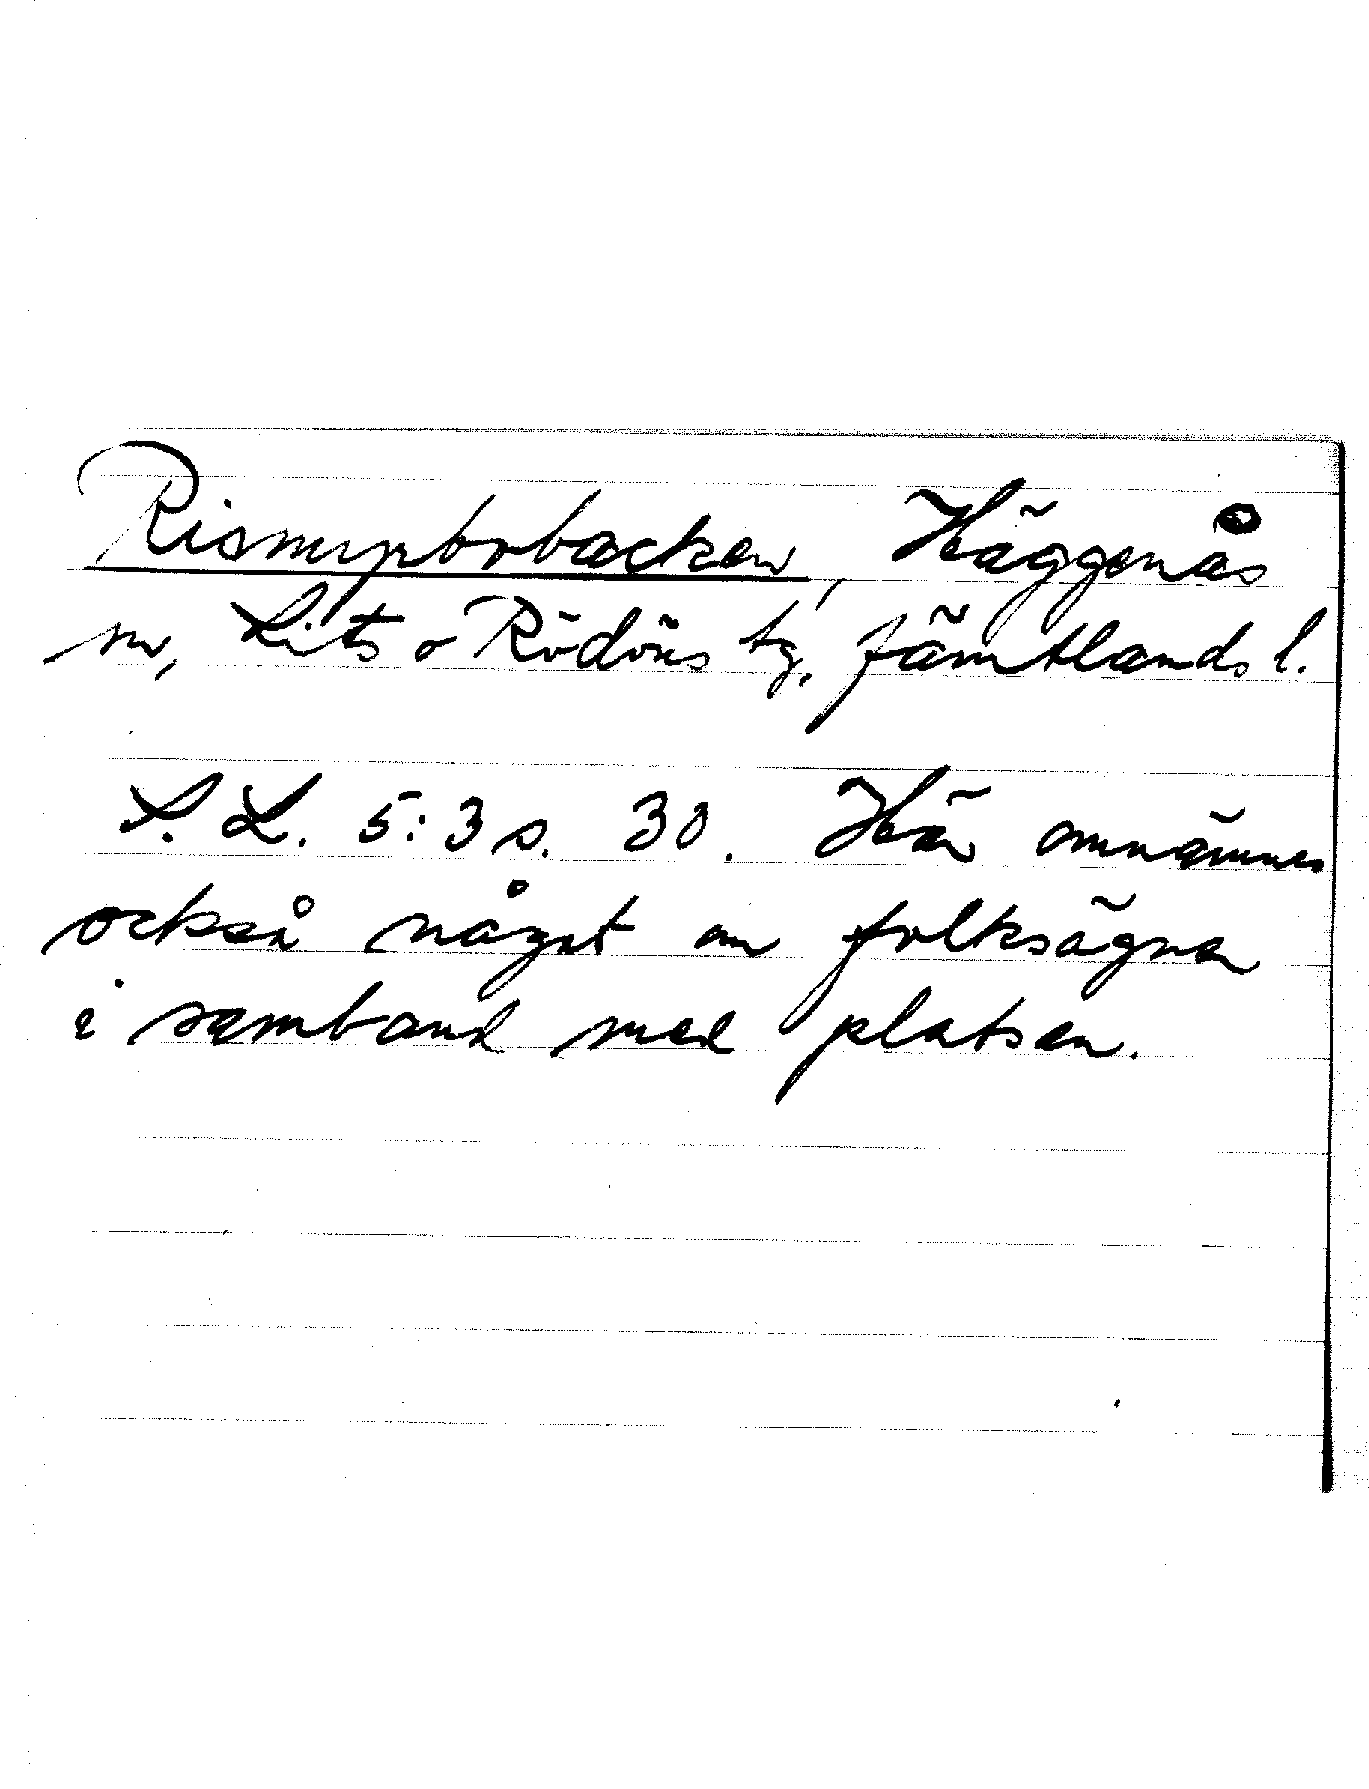 Rismyrbobacken, Häggenås
sn, Lits o Rödöns tg, Jämtlands l.
S. L. 5:3 s. 30. Här omnämnes
också något om folksägner
i samband med platsen.